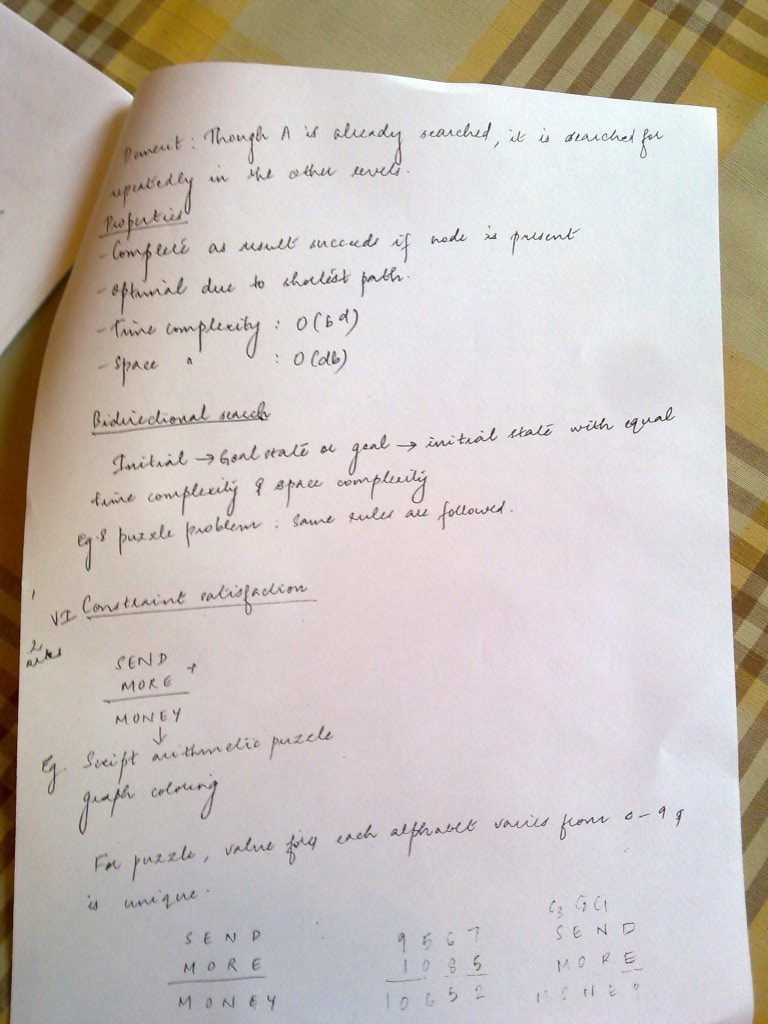 Demerit: Though A is already searched, it is searched for
repeatedly in the other levels.
Properties
- Complete as result succeeds if node is present
- optimal due to shortest path.
- Time complexity : O(b^d)
- Space " : O(db)
Bidirectional search
Initial → Goal state or goal → initial state with equal
time complexity & space complexity
Eg. 8 puzzle problem : same rules are followed.
VI Constraint satisfaction
2
SEND +
MORE
MONEY
↓
Eg. Script arithmetic puzzle
graph colouring
For puzzle, value of each alphabet varies from 0 - 9 &
is unique.
C3 C2 C1
SEND 9567 SEND
MORE 1085 MORE
MONEY 10652 MONEY